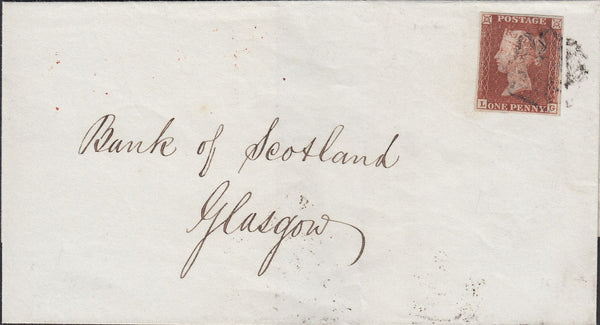 POSTAGE
L ONE PENNY G
Bank of Scotland
Glasgow